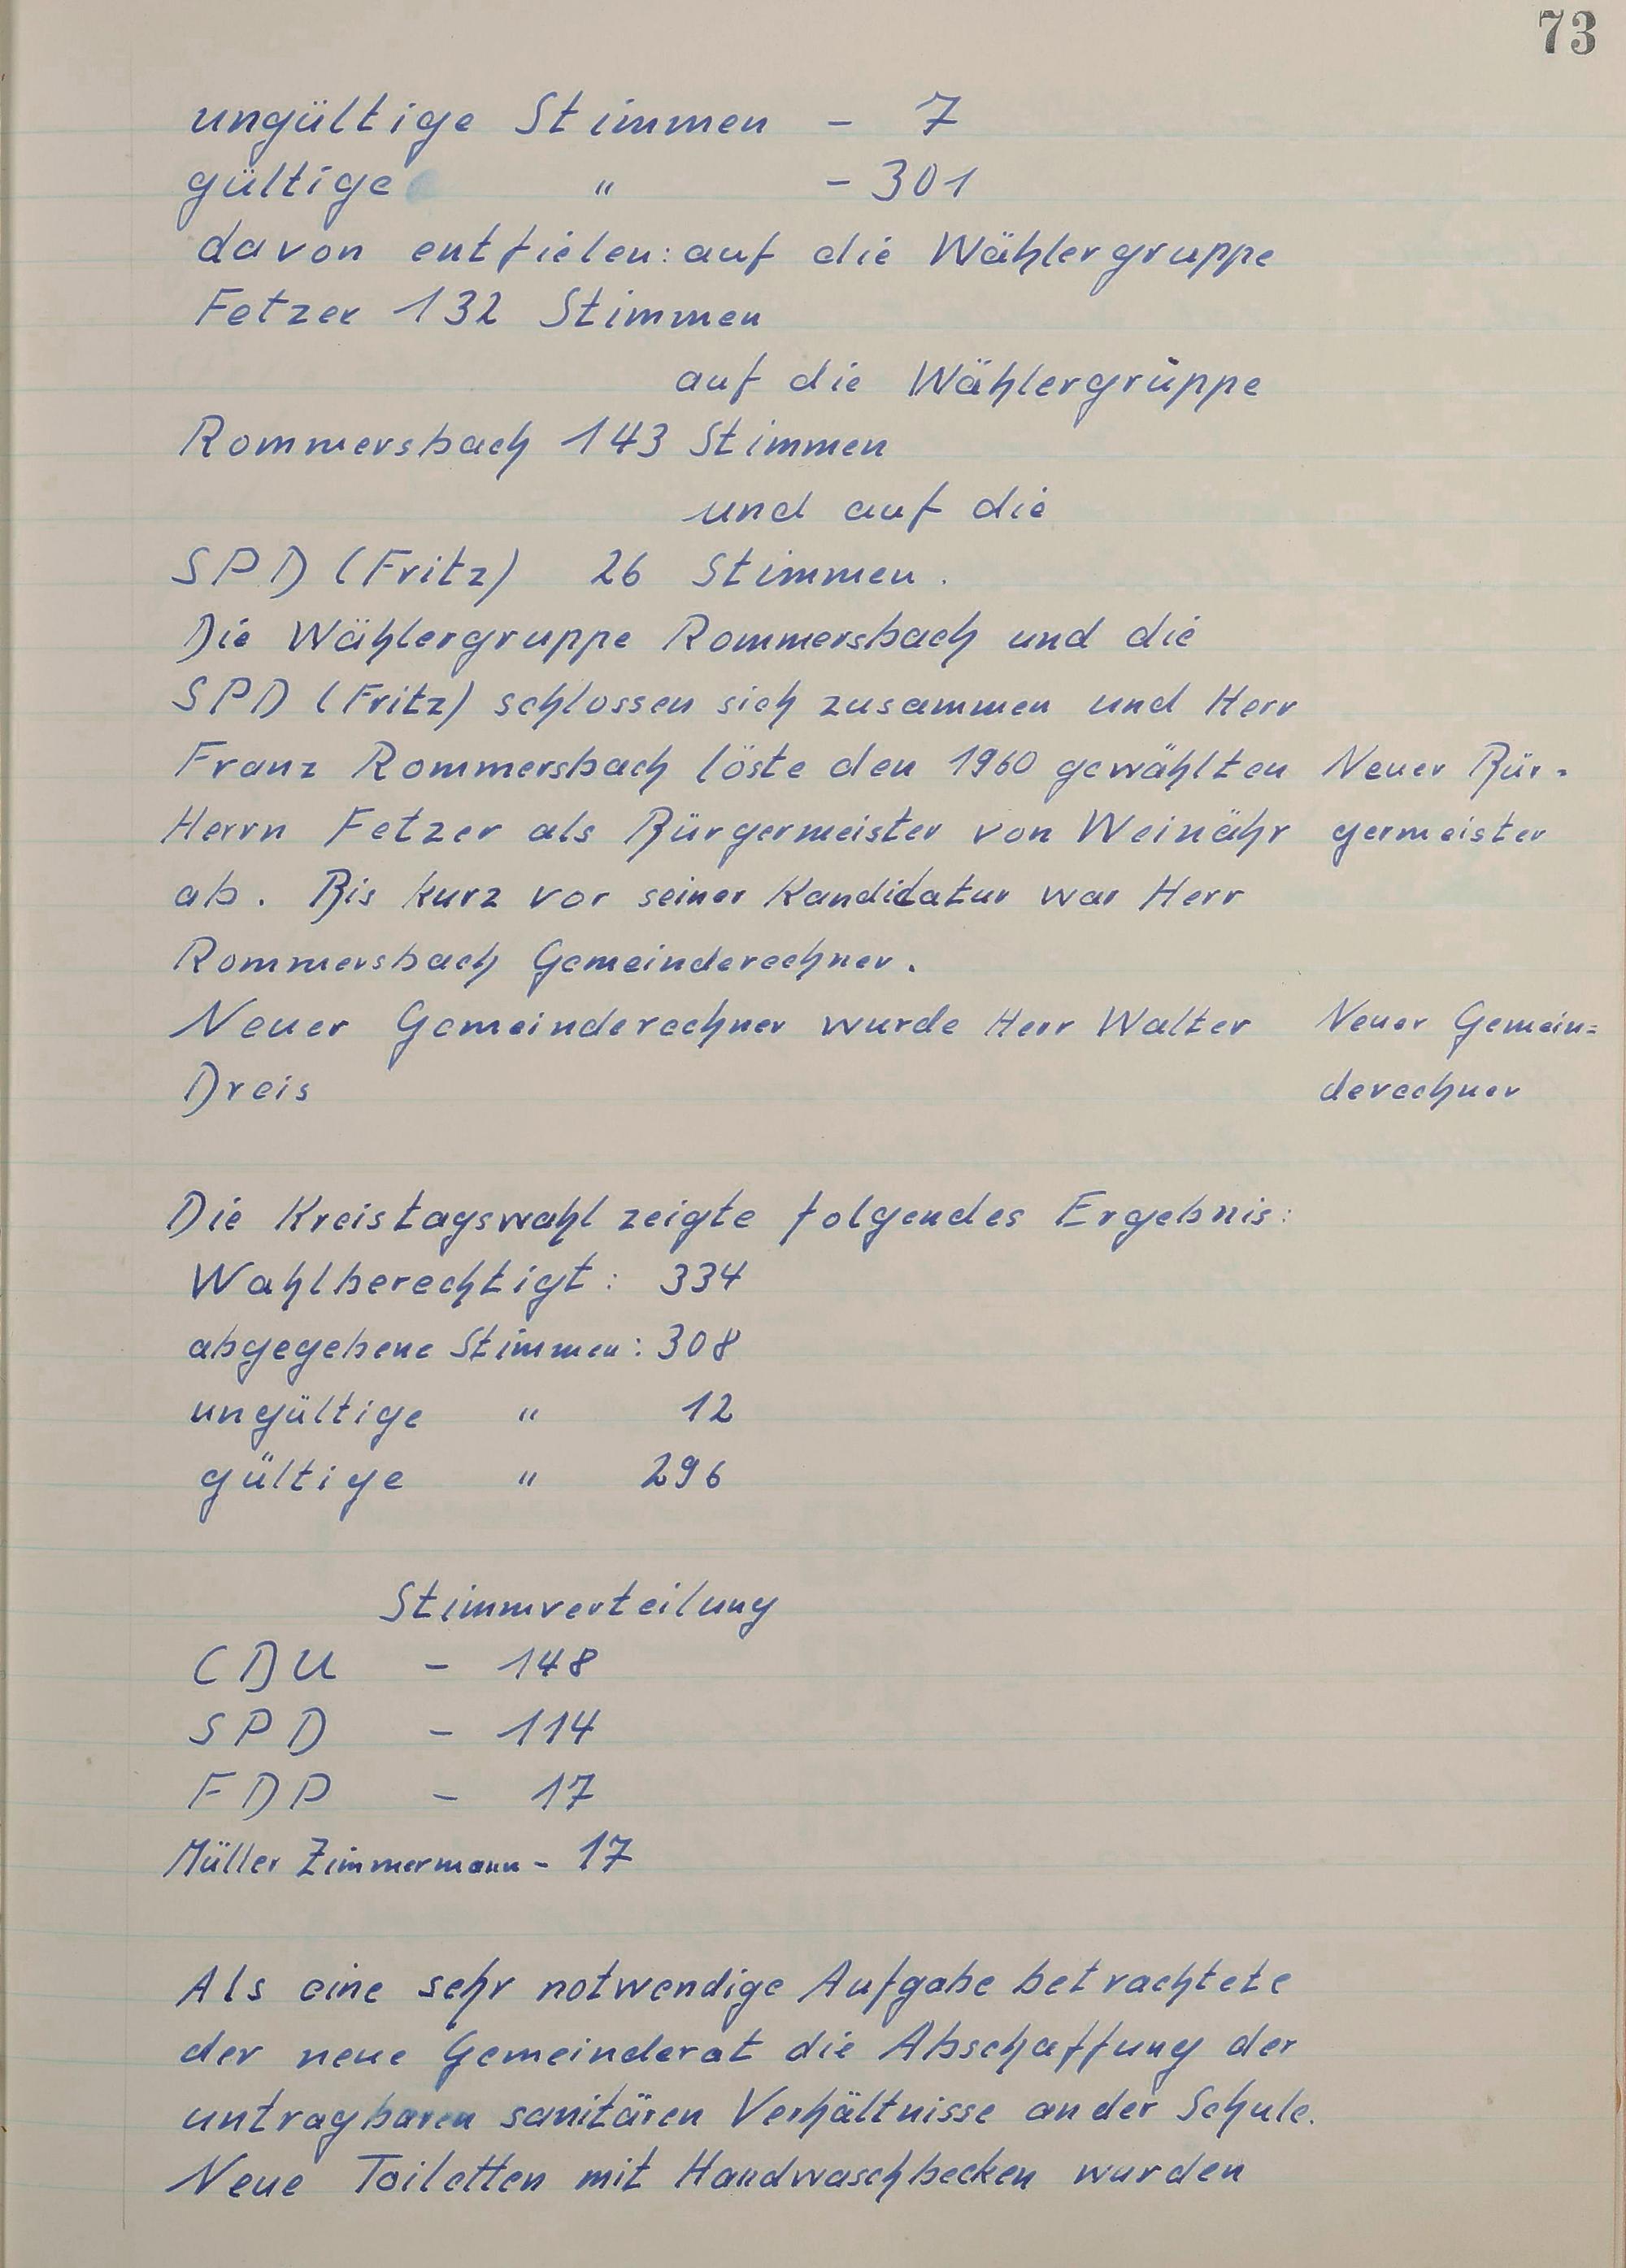 73
ungültige Stimmen - 7
gültige " - 301
davon entfielen: auf die Wählergruppe
Fetzer 132 Stimmen
auf die Wählergruppe
Rommersbach 143 Stimmen
und auf die
SPD (Fritz) 26 Stimmen.
Die Wählergruppe Rommersbach und die
SPD (Fritz) schlossen sich zusammen und Herr
Franz Rommersbach löste den 1960 gewählten Neuer Bür-
Herrn Fetzer als Bürgermeister von Weinähr germeister
ab. Bis kurz vor seiner Kandidatur war Herr
Rommersbach Gemeinderechner.
Neuer Gemeinderechner wurde Herr Walter Neuer Gemein=
Dreis derechner
Die Kreistagswahl zeigte folgendes Ergebnis:
Wahlberechtigt: 334
abgegebene Stimmen: 308
ungültige " 12
gültige " 296
Stimmverteilung
CDU - 148
SPD - 114
FDP - 17
Müller Zimmermann - 17
Als eine sehr notwendige Aufgabe betrachtete
der neue Gemeinderat die Abschaffung der
untragbaren sanitären Verhältnisse an der Schule.
Neue Toiletten mit Handwaschbecken wurden